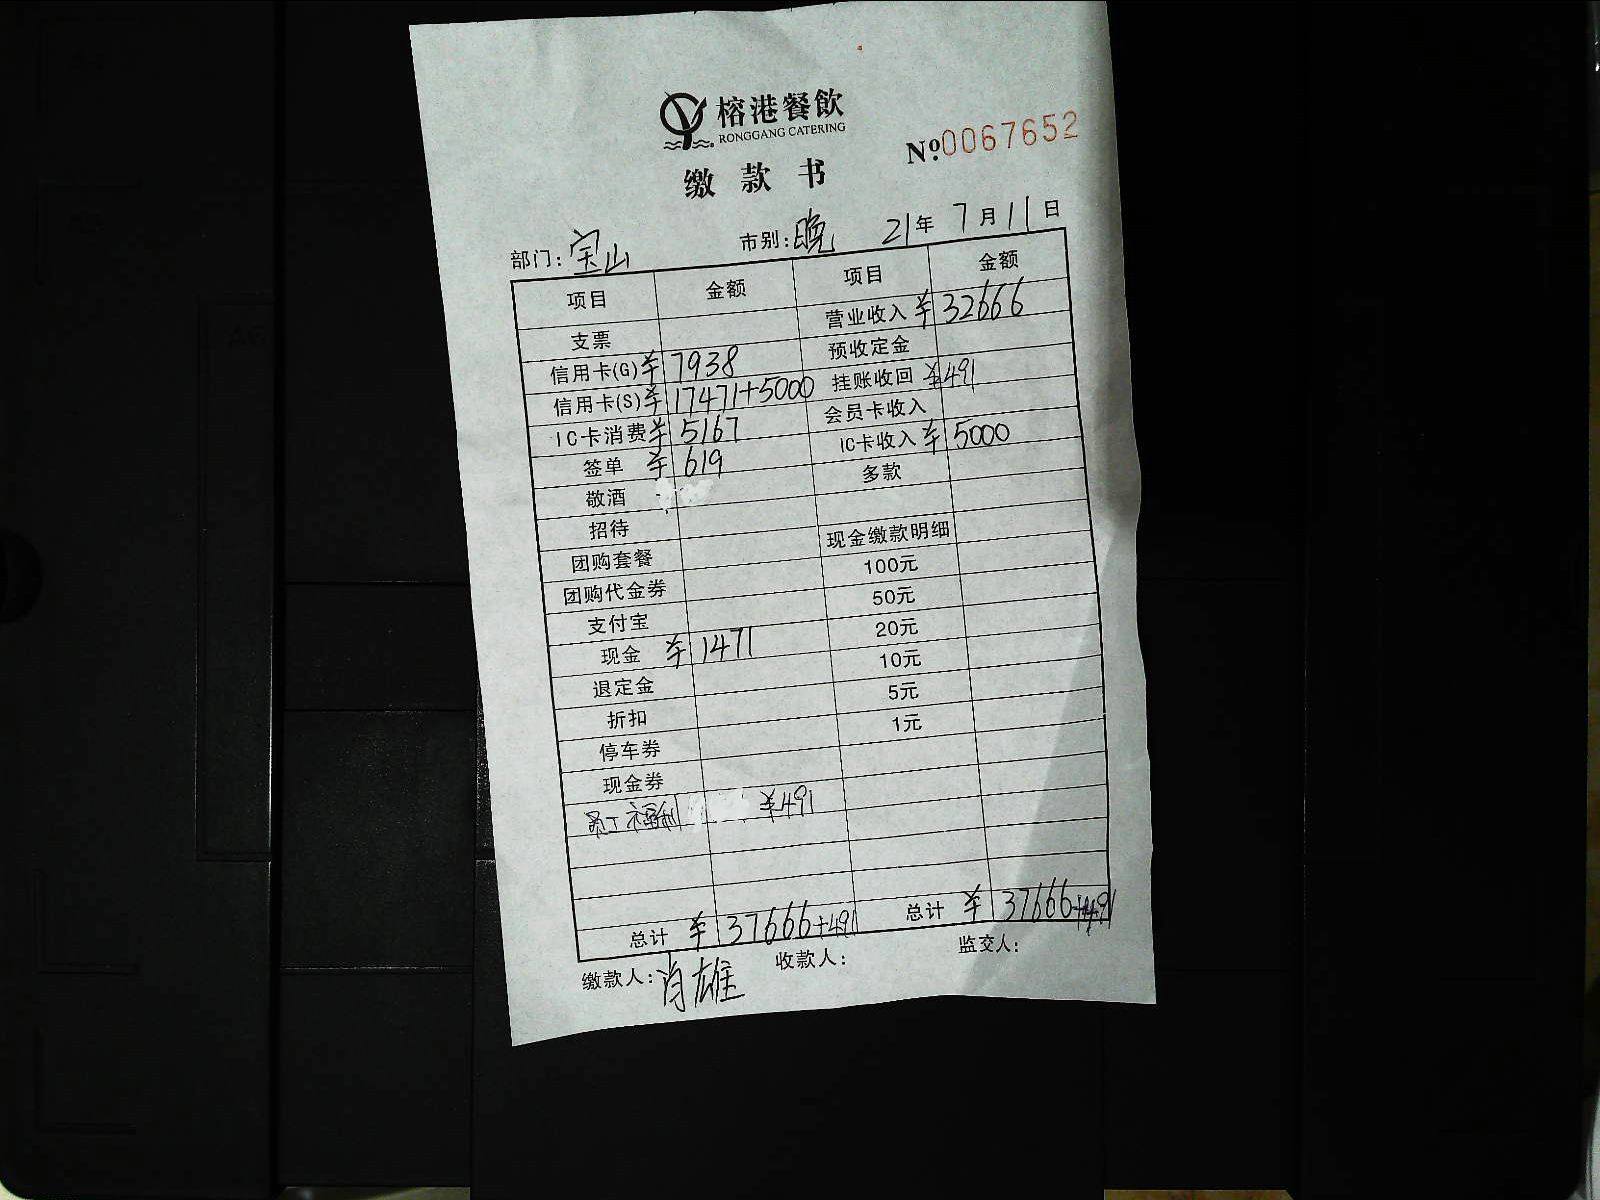 榕港餐飲
RONGGANG CATERING
缴款书
Nº0067652
部门:宝山 市别:晚 21年7月11日
项目 金额 项目 金额
支票 营业收入 ¥32666
信用卡(G) ¥7938 预收定金
信用卡(S) ¥17471+5000 挂账收回 ¥491
IC卡消费 ¥5167 会员卡收入
签单 ¥619 IC卡收入 ¥5000
敬酒 多款
招待
团购套餐 现金缴款明细
团购代金券 100元
支付宝 50元
现金 ¥1471 20元
退定金 10元
折扣 5元
停车券 1元
现金券
员工福利 ¥491
总计 ¥37666+491 总计 ¥37666+491
缴款人:肖雄 收款人: 监交人: